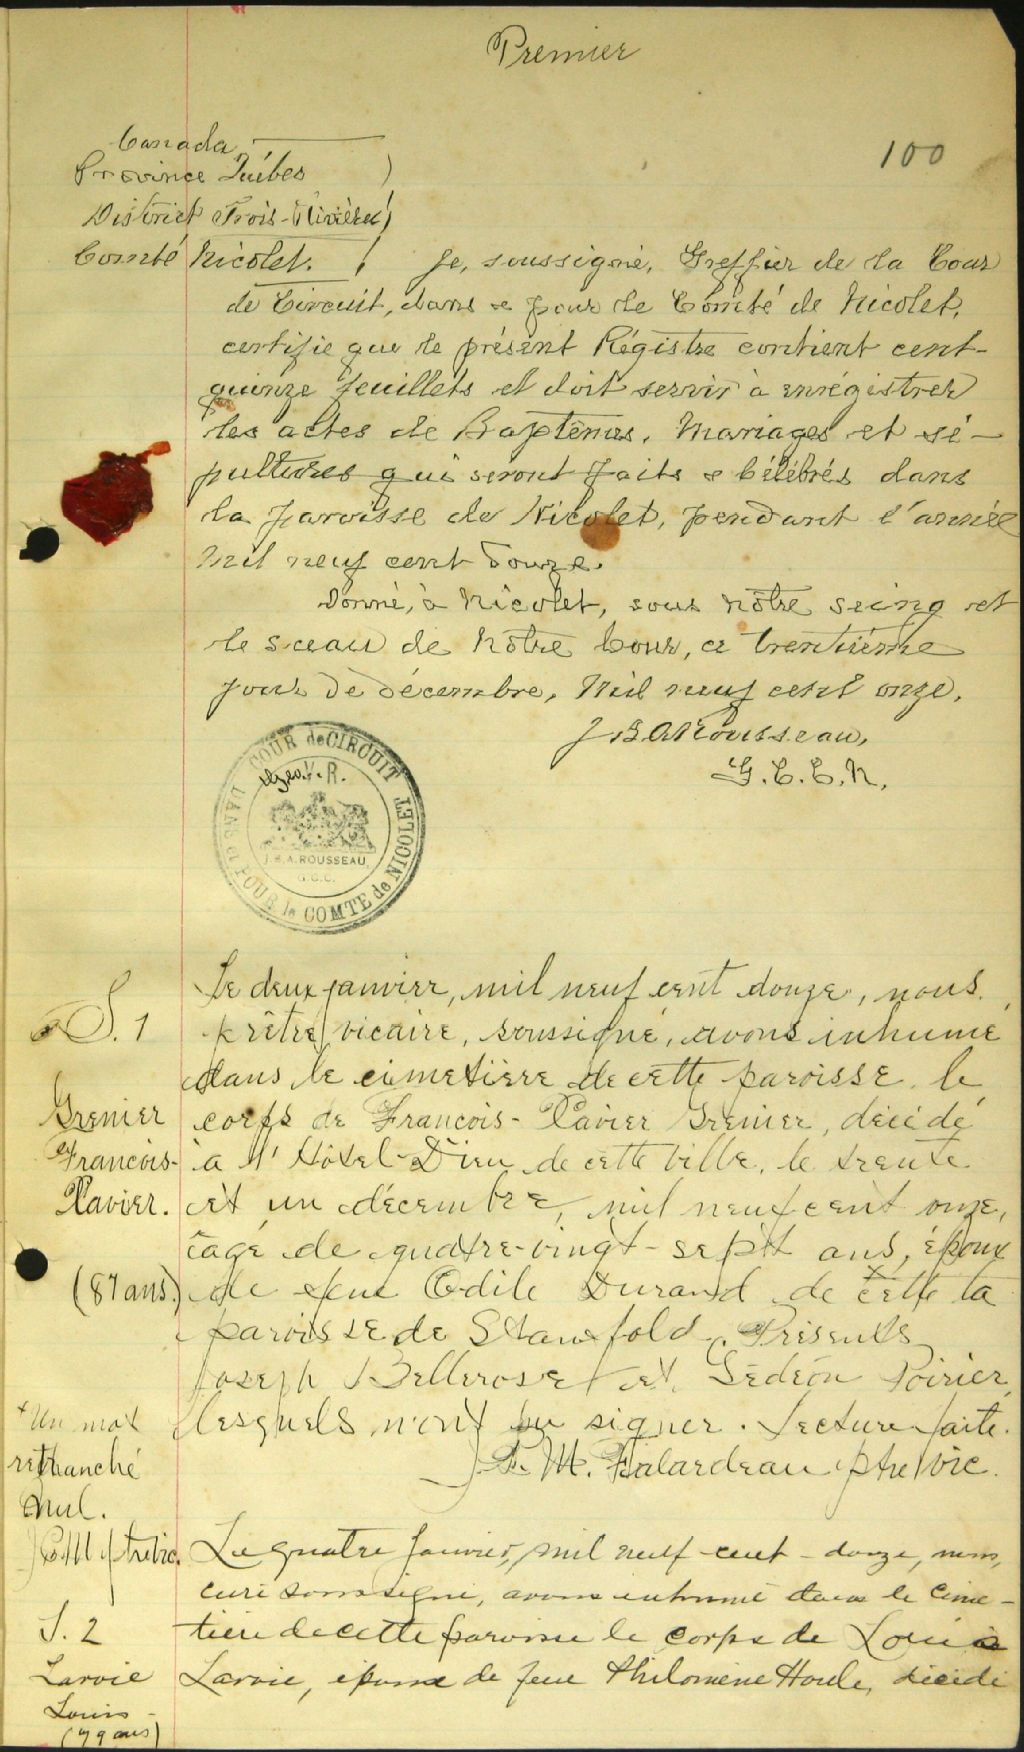 Premier
100
Canada
Province Québec
District Trois-Rivières
Comté Nicolet. Je, soussigné, Greffier de la Cour
de Circuit, dans & pour le Comté de Nicolet,
certifie que le présent Régistre contient cent-
quinze feuillets et doit servir à enrégistrer
les actes de Baptêmes, Mariages et sé-
pultures qui seront faits & Célébrés dans
la paroisse de Nicolet, pendant l'année
mil neuf cent douze.
Donné, à Nicolet, sous nôtre seing et
le sceau de Nôtre Cour, ce trentième
jour de décembre, Mil neuf cent onze.
J.B.A. Rousseau,
G.C.C.N.
COUR de CIRCUIT
DANS et POUR le COMTE de NICOLET
Geo. V. R.
J.B.A. ROUSSEAU,
G.C.C.
S. 1
Grenier
François-
Xavier.
(87 ans.)
Le deux janvier, mil neuf cent douze, nous
prêtre vicaire, soussigné, avons inhumé
dans le cimetière de cette paroisse, le
corps de François-Xavier Grenier, décédé
à l'Hôtel-Dieu de cette ville, le trente
et un décembre, mil neuf cent onze,
âgé de quatre-vingt-sept ans, époux
de feue Odile Durand de cette la
paroisse de Stanfold. Présents
Joseph Bellerose et Gédéon Poirier
lesquels n'ont su signer. Lecture faite.
J.E.M. Falardeau ptre vic.
+ Un mot
retranché
nul.
J.E.M ptre vic.
S. 2
Lavoie
Louis
(79 ans)
Le quatre Janvier, mil neuf-cent-douze, nous,
curé soussigné, avons inhumé dans le cime-
tière de cette paroisse le corps de Louis
Lavoie, époux de feue Philomène Houle, décédé